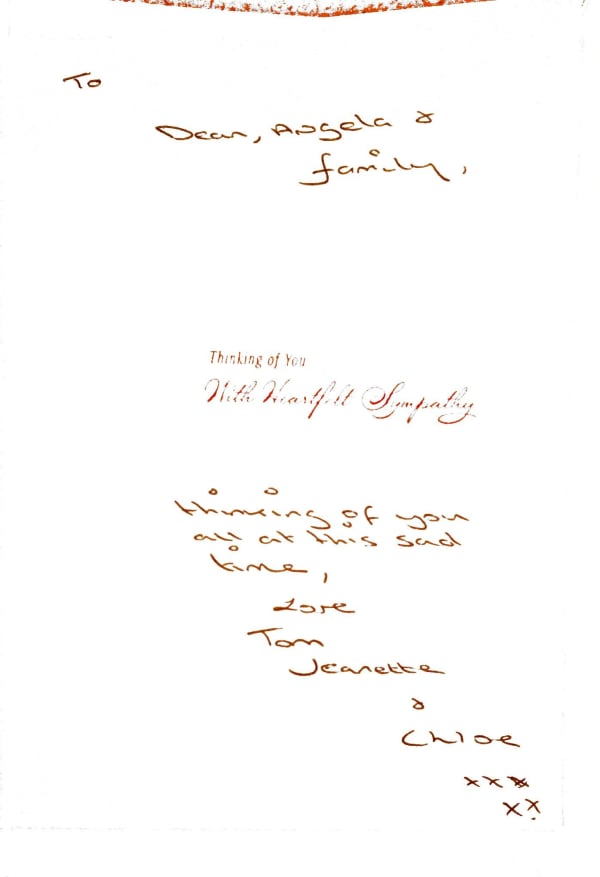 To
Dear, Angela &
family,
Thinking of You
With Heartfelt Sympathy
thinking of you
all at this sad
time,
Love
Tom
Jeanette
&
Chloe
xxx
xx